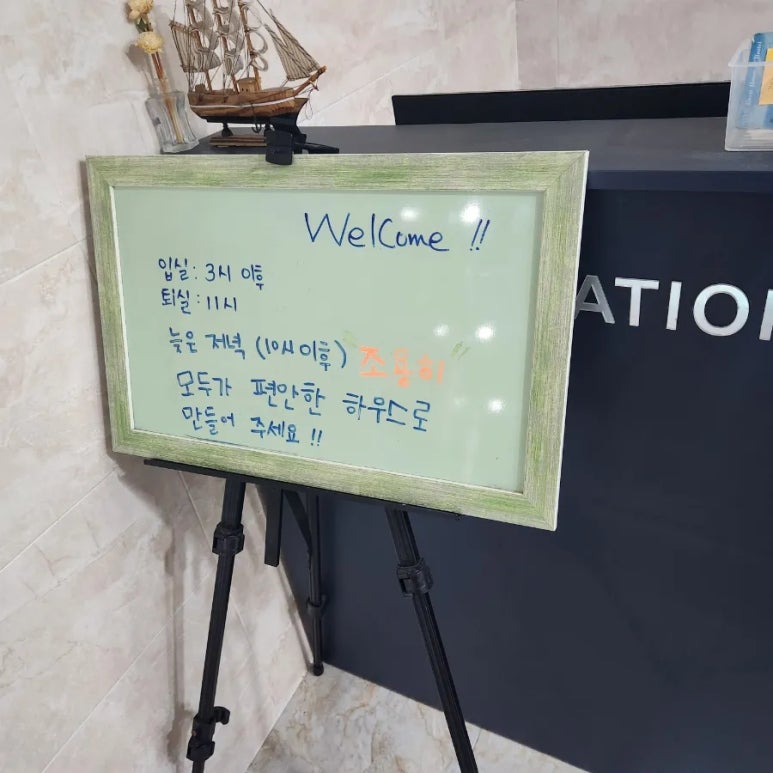 Welcome !!
입실: 3시 이후
퇴실: 11시
늦은 저녁 (10시이후) "조용히"
모두가 편안한 하우스로
만들어 주세요!!
ATION